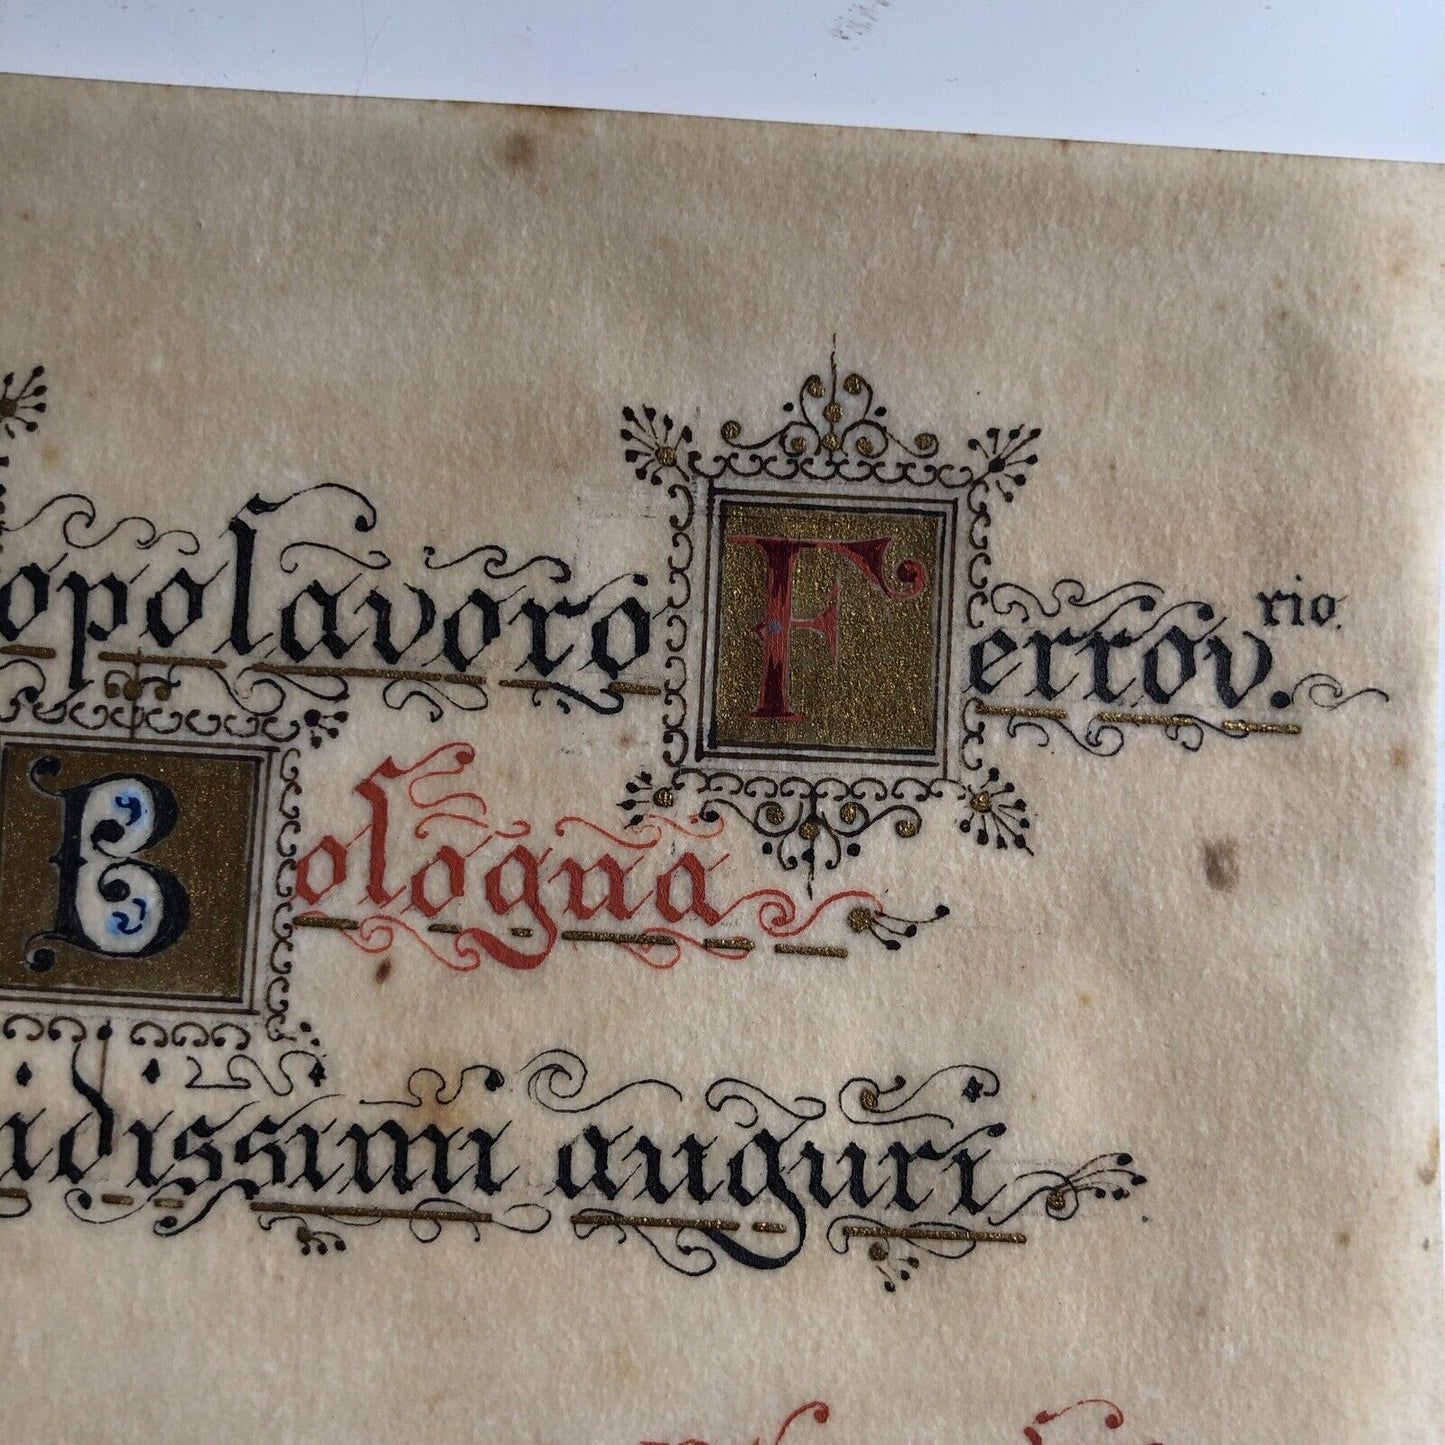 opolavoro Ferrov.rio.
Bologna
idissimi auguri